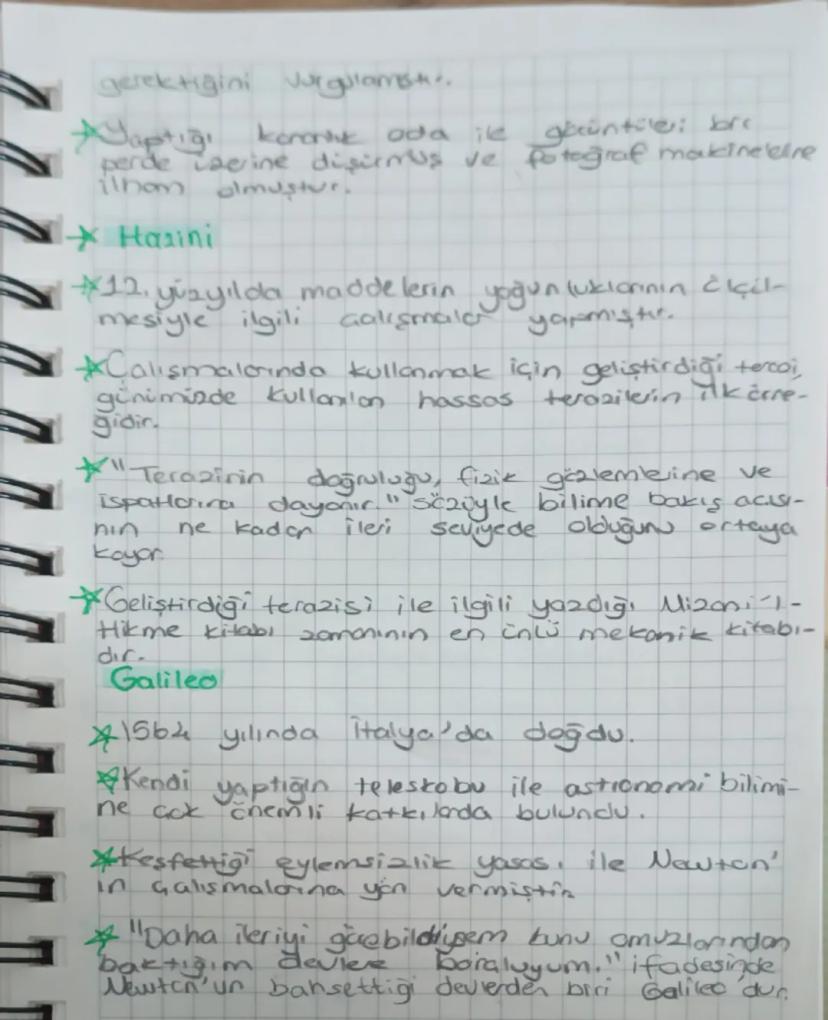 gerektiğini vurgulamıştır.
Yaptığı karanlık oda ile görüntüleri bir
perde üzerine düşürmüş ve fotoğraf makinelerine
ilham olmuştur.
Hazini
12. yüzyılda maddelerin yoğunluklarının ölçül-
mesiyle ilgili çalışmalar yapmıştır.
Çalışmalarında kullanmak için geliştirdiği terazi,
günümüzde kullanılan hassas terazilerin ilk örne-
ğidir.
"Terazinin doğruluğu, fizik gözlemlerine ve
ispatlarına dayanır." sözüyle bilime bakış açısı-
nın ne kadar ileri seviyede olduğunu ortaya
koyar.
Geliştirdiği terazisi ile ilgili yazdığı Mizani'l-
Hikme kitabı zamanının en ünlü mekanik kitabı-
dır.
Galileo
1564 yılında İtalya'da doğdu.
Kendi yaptığın teleskobu ile astronomi bilimi-
ne çok önemli katkılarda bulundu.
Keşfettiği eylemsizlik yasası ile Newton'
ın çalışmalarına yön vermiştir
"Daha ileriyi görebildiysem bunu omuzlarından
baktığım devlere borçluyum." ifadesinde
Newton'un bahsettiği devlerden biri Galileo'dur.